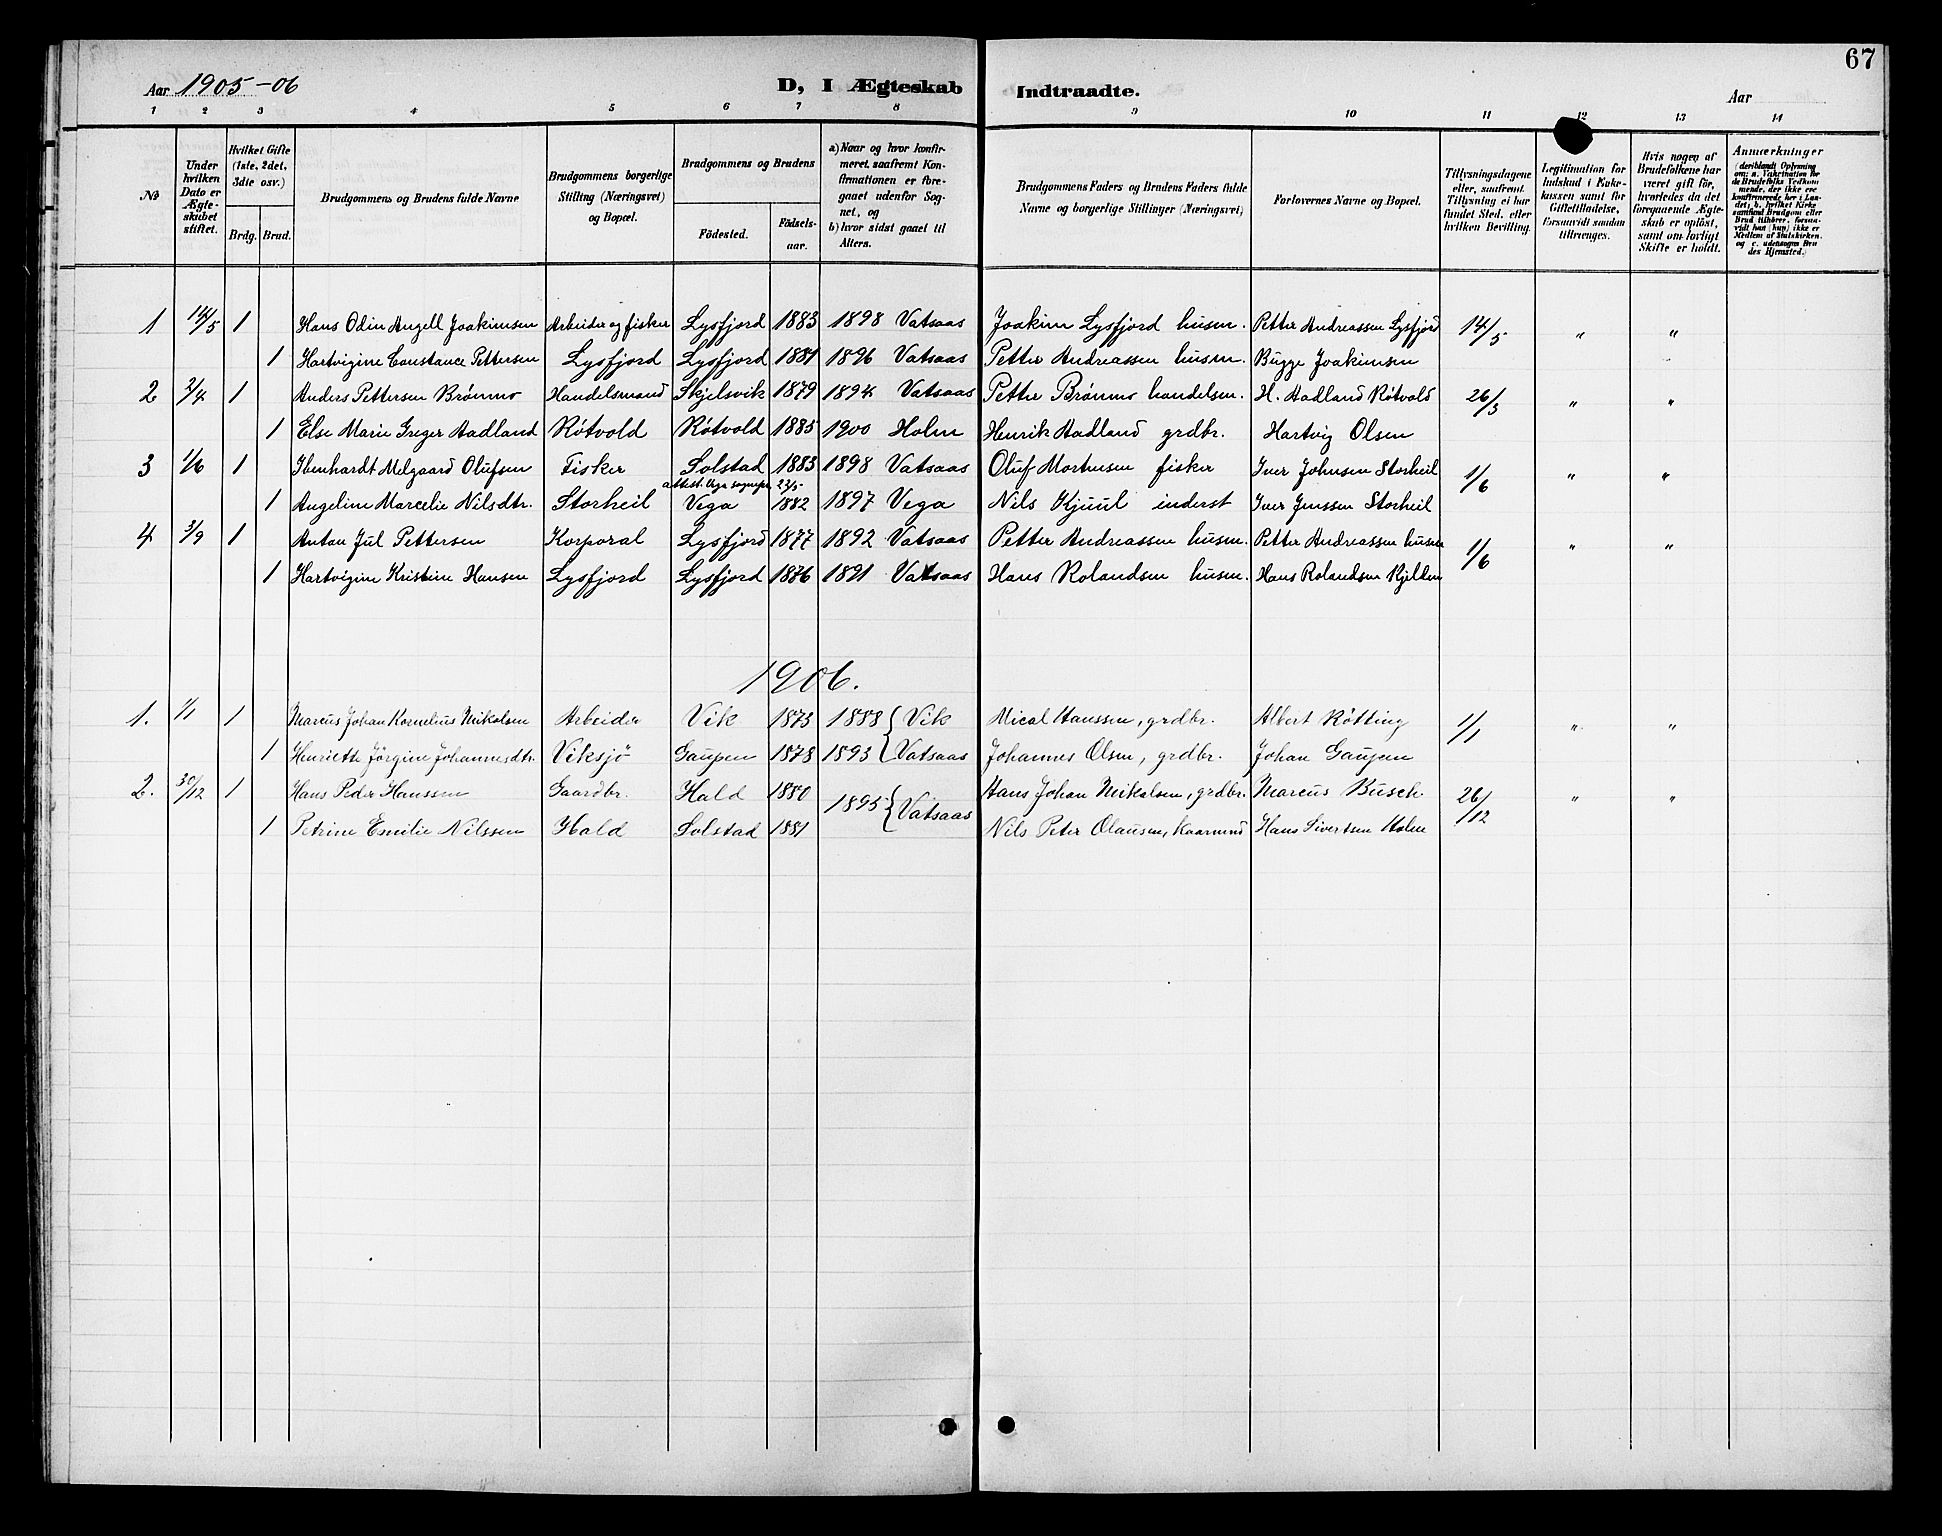 67
Aar 1905-06 D, I Ægteskab Indtraadte. Aar
1 2 3 4 5 6 7 8 9 10 11 12 13 14
No
Under hvilken Dato er Ægteskabet stiftet.
Hvilket Gifte (1ste, 2det, 3die osv.)
Brdg. Brud.
Brudgommens og Brudens fulde Navne
Brudgommens borgerlige Stilling (Næringsvei) og Bopæl.
Brudgommens og Brudens
Födested. Födselsaar.
a) Naar og hvor konfirmeret, saafremt Konfirmationen er foregaaet udenfor Sognet, og
b) hvor sidst gaaet til Alters.
Brudgommens Faders og Brudens Faders fulde Navne og borgerlige Stillinger (Næringsvei)
Forlovernes Navne og Bopæl.
Tillysningsdagene eller, saafremt Tillysning ei har fundet Sted, efter hvilken Bevilling.
Legitimation for Indskud i Enkekassen samt for Giftetilladelse, forsaavidt saadan tiltrænges.
Hvis nogen af Brudefolkene har været gift för, hvorledes da det foregaaende Ægteskab er oplöst, samt om lovligt Skifte er holdt.
Anmærkninger (deriblandt Oplysning om: a. Vakcination for de Brudefolks Vedkommende, der ikke ere konfirmerede her i Landet; b. hvilket Kirkesamfund Brudgom eller Brud tilhörer, forsaavidt han (hun) ikke er Medlem af Statskirken, og c. udensogns Brudes Hjemsted.)
1 14/5 1 Hans Odin Angell Joakimsen Arbeider og fisker Lysfjord 1883 1898 Vatsaas Joakim Lysfjord husm. Petter Andreassen Lysfjord 14/5 " "
1 Hartvigine Constance Pettersen Lysfjord Lysfjord 1881 1896 Vatsaas Petter Andreassen husm. Bugge Joakimsen
2 2/4 1 Anders Pettersen Brønmo Handelsmand Skjelsvik 1879 1894 Vatsaas Petter Brønmo handelsm. H. Aadland Røtvold 26/3 " "
1 Else Marie Greger Aadland Røtvold Røtvold 1885 1900 Holm Henrik Aadland grdbr. Hartvig Olsen
3 1/6 1 Ibenhardt Melgaard Olufsen Fisker Solstad 1883 1898 Vatsaas Oluf Mortensen fisker Iver Johnsen Storheil 1/6 " "
attest. Vega sognepr. 23/5
1 Angeline Marcelie Nilsdtr. Storheil Vega 1882 1897 Vega Nils Kjuul inderst Iver Jenssen Storheil
4 3/9 1 Anton Jul Pettersen Korporal Lysfjord 1877 1892 Vatsaas Petter Andreassen husm. Petter Andreassen husm 1/6 " "
1 Hartvigine Kristine Hansen Lysfjord Lysfjord 1876 1891 Vatsaas Hans Rolandsen husm. Hans Rolandsen Kjelden
1906.
1. 1/1 1 Marcus Johan Kornelius Mikalsen Arbeider Vik 1873 1888 Vik Mical Hanssen, grdbr. Albert Røtting 1/1 " "
1 Henriette Jörgine Johannesdtr. Viksjö Gaupen 1878 1893 Vatsaas Johannes Olsen, grdbr. Johan Gaupen
2. 30/12 1 Hans Peder Hanssen Gaardbr. Hald 1880 1895 Vatsaas Hans Johan Mikalsen, grdbr. Marcus Busch 26/12 " "
1 Petrine Emilie Nilssen Hald Solstad 1881 Nils Peter Olausen, Kaarmnd Hans Sivertsen Holm